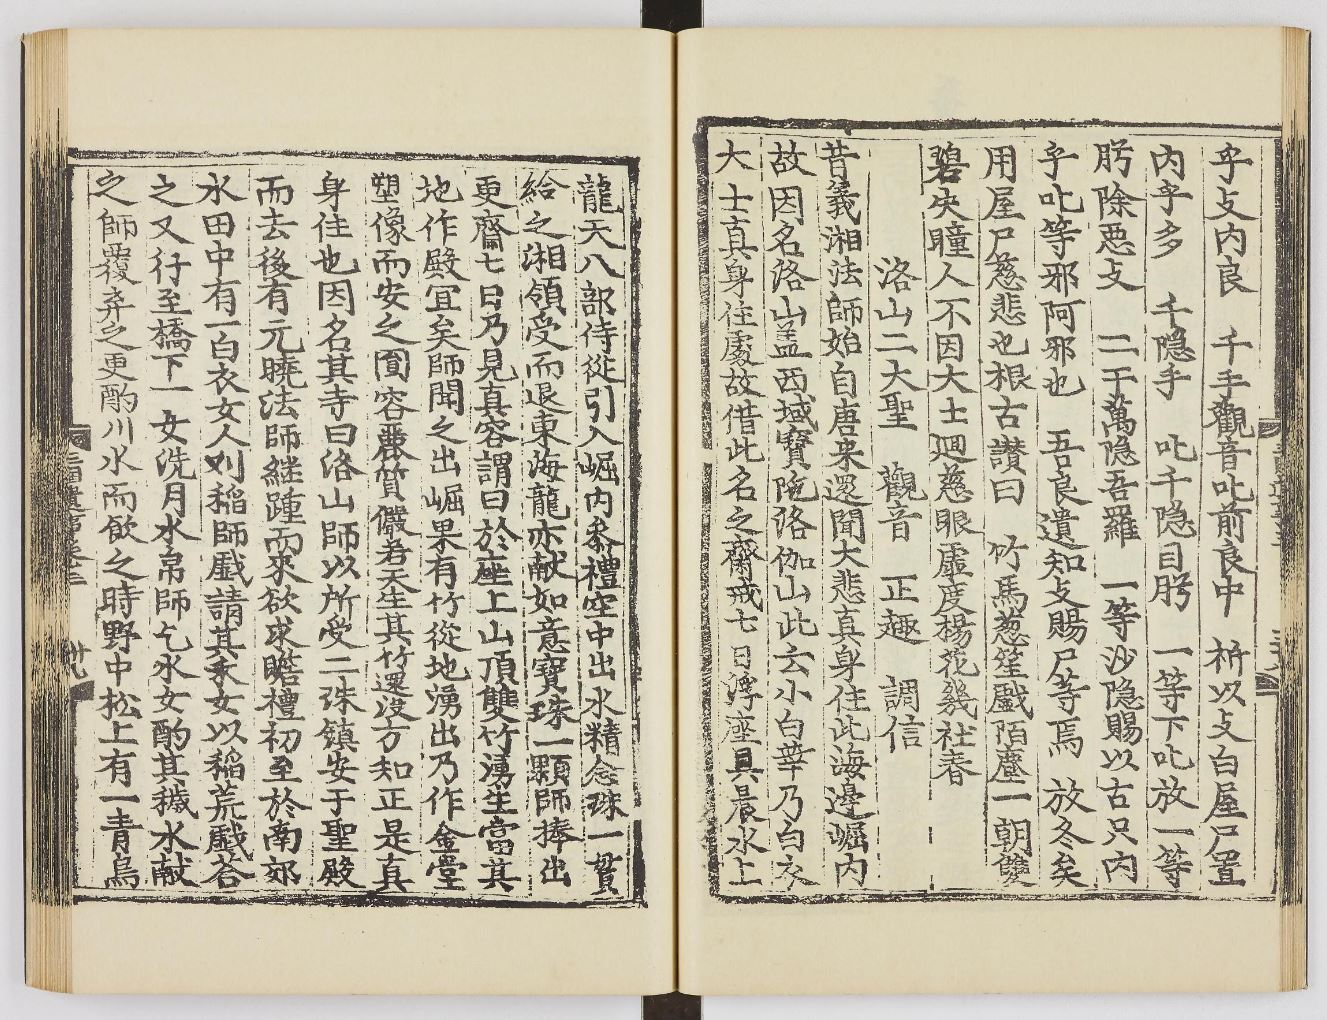 乎攴内良　千手觀音叱前良中　祈以攴白屋尸置
内乎多　千隱手　叱千隱目肹　一等下叱放一等
肹除惡攴　二于萬隱吾羅　一等沙隱賜以古只内
乎叱等邪阿邪也　吾良遺知攴賜尸等焉　放冬矣
用屋尸慈悲也根古讃曰　竹馬葱笙戱陌塵一朝雙
碧失瞳人不因大士廻慈眼虛度楊花幾社春
洛山二大聖　觀音　正趣　調信
昔義湘法師始自唐来還聞大悲真身住此海邊崛内
故因名洛山盖西域寶陁洛伽山此云小白華乃白衣
大士真身住處故借此名之齋戒七日浮座具晨水上
龍天八部侍從引入崛内叅禮空中出水精念珠一貫
給之湘領受而退東海龍亦献如意寶珠一顆師捧出
更齋七日乃見真容謂曰於座上山頂雙竹湧生當其
地作殿宜矣師聞之出崛果有竹從地湧出乃作金堂
塑像而安之圎容麗質儼若天生其竹還没方知正是真
身住也因名其寺曰洛山師以所受二珠鎮安于聖殿
而去後有元曉法師継踵而來欲求瞻禮初至於南郊
水田中有一白衣女人刈稲師戱請其禾女以稲荒戱荅
之又行至橋下一女洗月水帛師乞水女酌其穢水献
之師覆弃之更酌川水而飲之時野中松上有一青鳥
三國遺事卷三
卅九